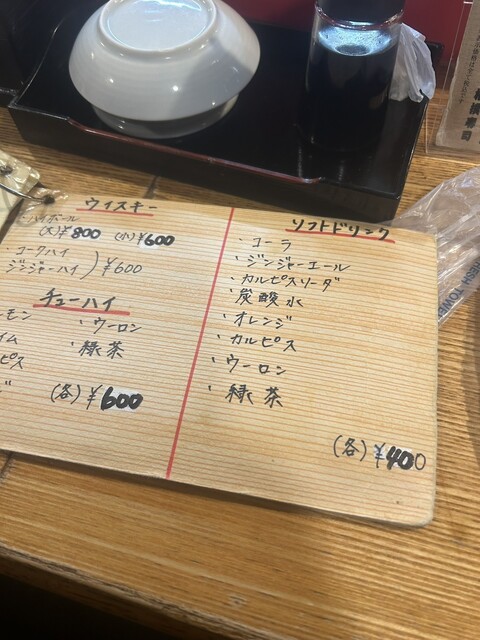 ウィスキー
ハイボール
(大)¥800 (小)¥600
コークハイ
ジンジャーハイ ) ¥600
チューハイ
モン ・ウーロン
イム ・緑茶
ピス
(各) ¥600
ソフトドリンク
・コーラ
・ジンジャーエール
・カルピスソーダ
・炭酸水
・オレンジ
・カルピス
・ウーロン
・緑茶
(各) ¥400